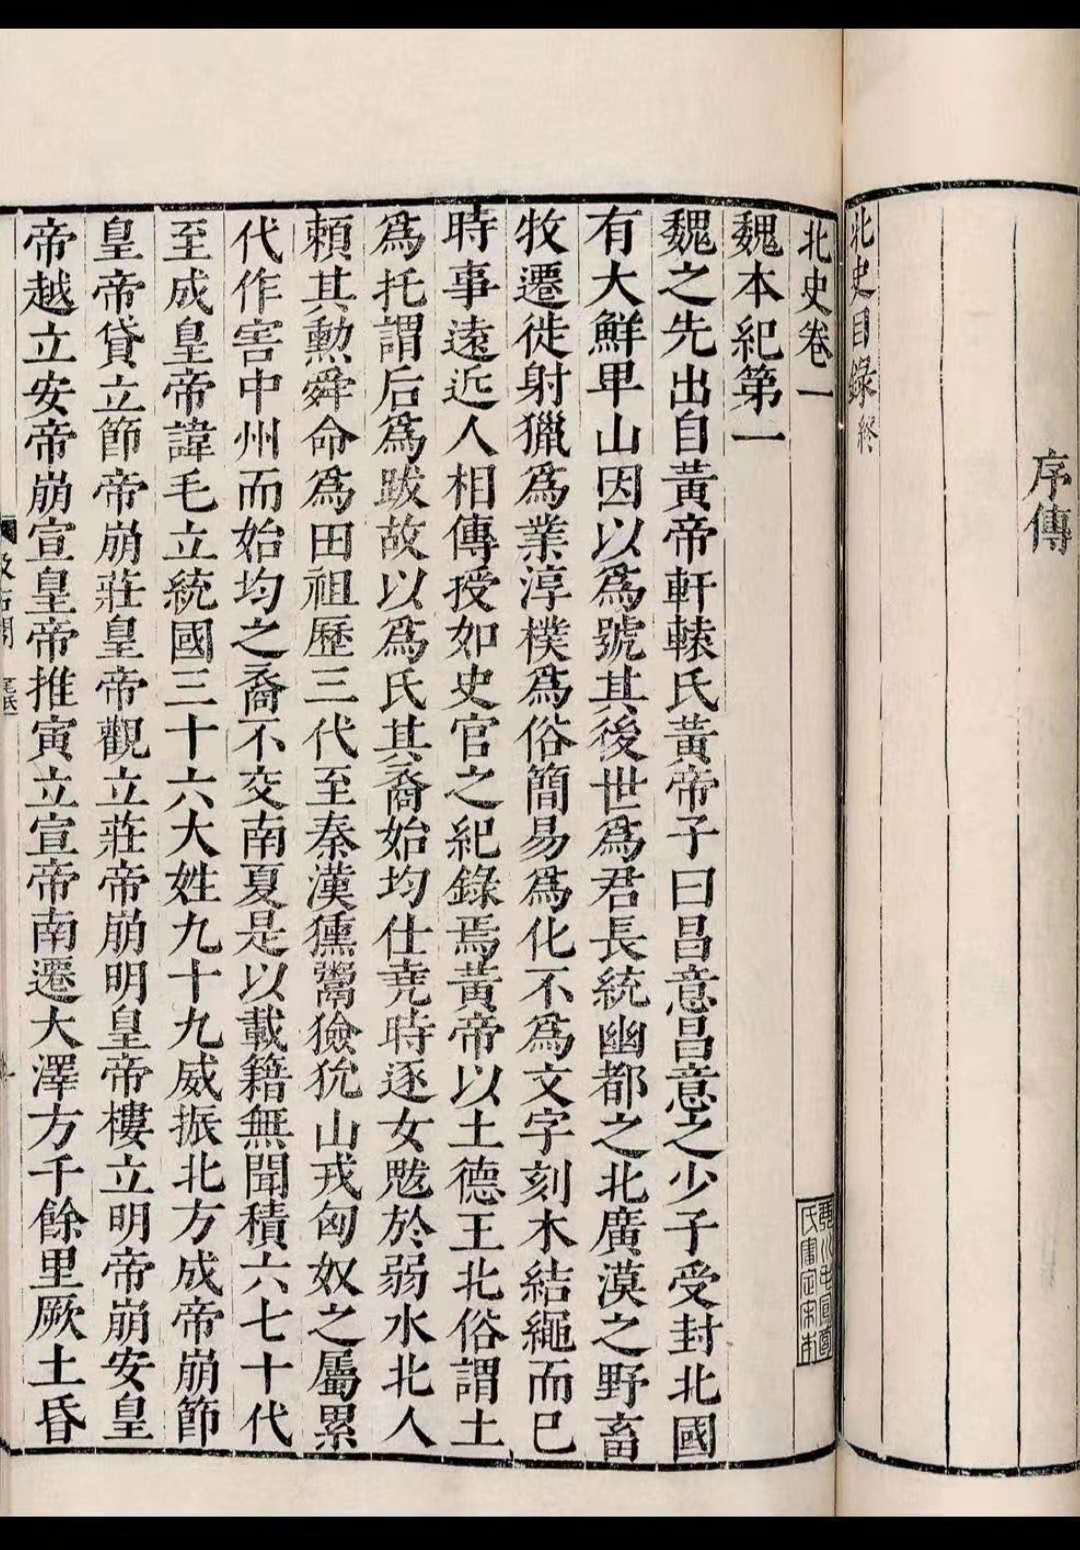 序傳
北史目錄終
北史卷一
魏本紀第一
魏之先出自黃帝軒轅氏黃帝子曰昌意昌意之少子受封北國
有大鮮卑山因以爲號其後世爲君長統幽都之北廣漠之野畜
牧遷徙射獵爲業淳樸爲俗簡易爲化不爲文字刻木結繩而已
時事遠近人相傳授如史官之紀錄焉黃帝以土德王北俗謂土
爲托謂后爲跋故以爲氏其裔始均仕堯時逐女魃於弱水北人
賴其勲舜命爲田祖歷三代至秦漢獯鬻獫狁山戎匈奴之屬累
代作害中州而始均之裔不交南夏是以載籍無聞積六七十代
至成皇帝諱毛立統國三十六大姓九十九威振北方成帝崩節
皇帝貸立節帝崩莊皇帝觀立莊帝崩明皇帝樓立明帝崩安皇
帝越立安帝崩宣皇帝推寅立宣帝南遷大澤方千餘里厥土昏